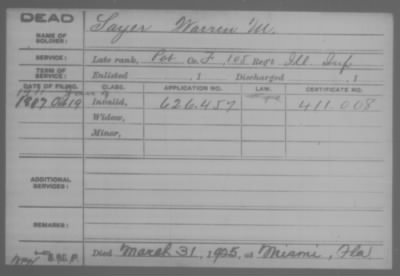 DEAD
NAME OF SOLDIER: Sayer Warren M.
SERVICE: Late rank, Pvt Co. F, 105 Reg't Ill. Inf
TERM OF SERVICE: Enlisted , 1 Discharged , 1
DATE OF FILING. CLASS. APPLICATION NO. LAW. CERTIFICATE NO.
1887 Oct 19 Invalid, 626.457 411.008
Widow,
Minor,
ADDITIONAL SERVICES:
REMARKS:
Died March 31, 1925, at Miami, Fla